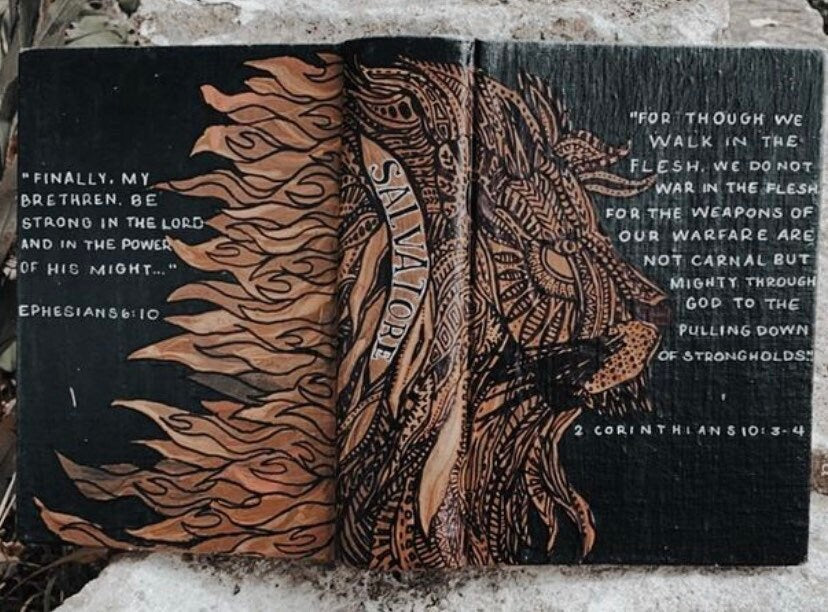 "FINALLY, MY
BRETHREN, BE
STRONG IN THE LORD
AND IN THE POWER
OF HIS MIGHT..."
EPHESIANS 6:10
SALVATORE
"FOR THOUGH WE
WALK IN THE
FLESH, WE DO NOT
WAR IN THE FLESH
FOR THE WEAPONS OF
OUR WARFARE ARE
NOT CARNAL BUT
MIGHTY THROUGH
GOD TO THE
PULLING DOWN
OF STRONGHOLDS."
2 CORINTHIANS 10:3-4